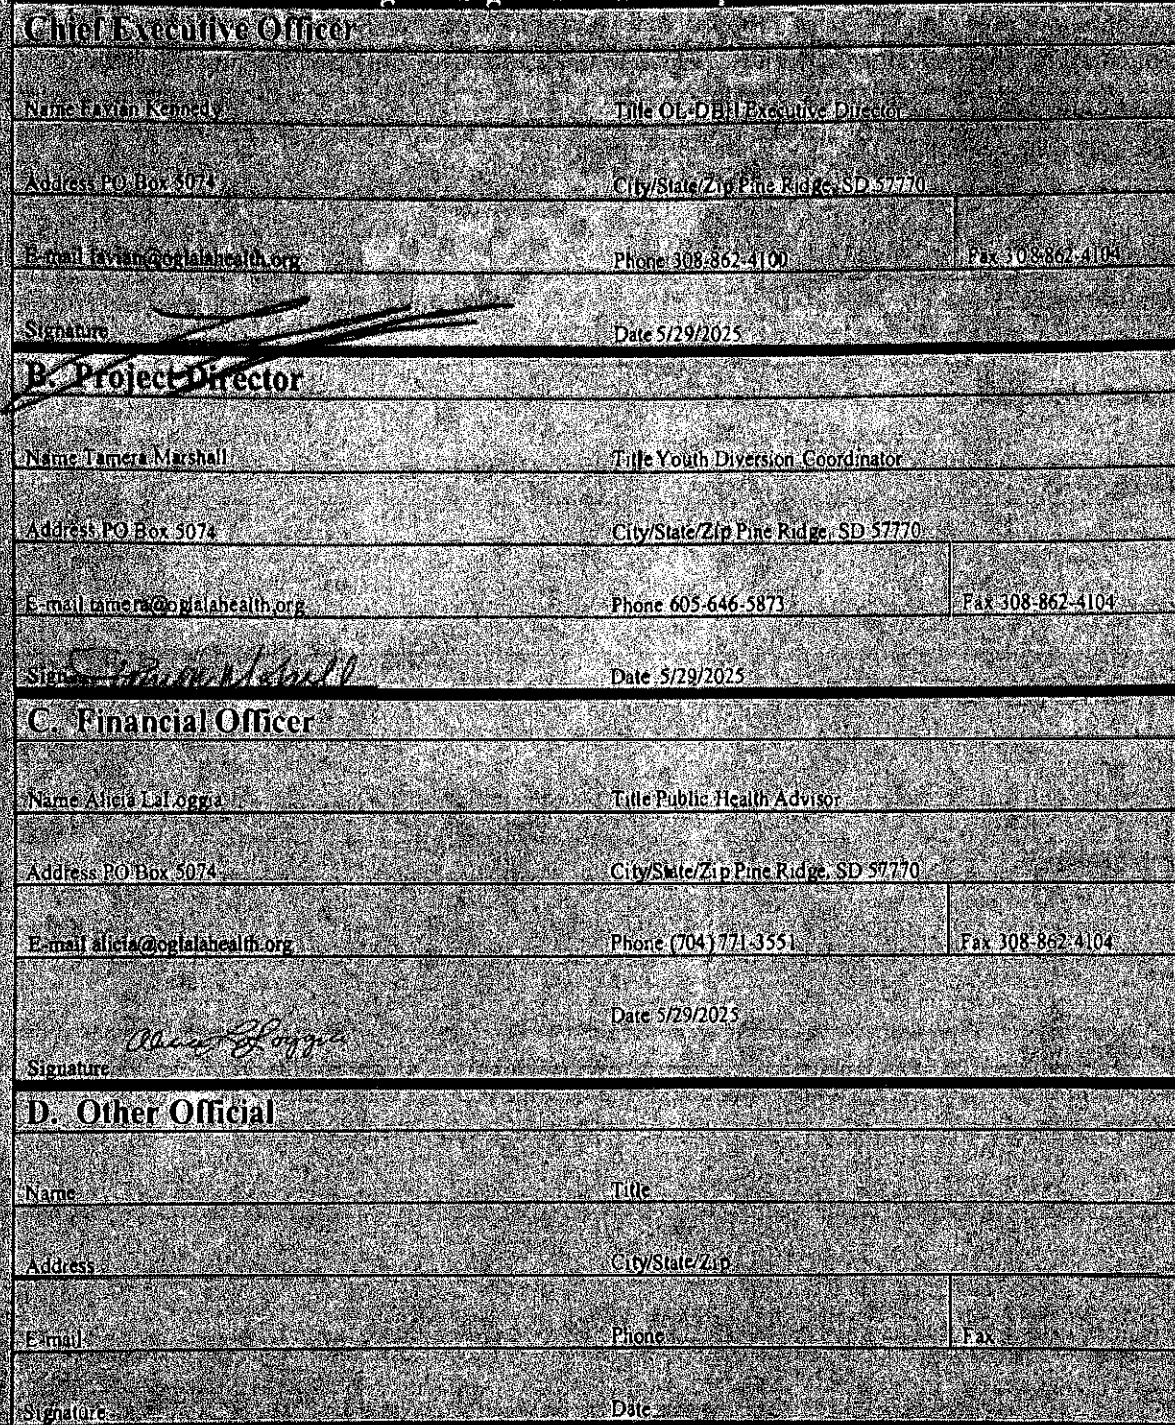 Chief Executive Officer
Name Favian Kennedy Title OL-DBH Executive Director
Address PO Box 5074 City/State/Zip Pine Ridge, SD 57770
E-mail favian@oglalahealth.org Phone 308-862-4100 Fax 308-862-4104
Signature Date 5/29/2025
B. Project Director
Name Tamera Marshall Title Youth Diversion Coordinator
Address PO Box 5074 City/State/Zip Pine Ridge, SD 57770
E-mail tamera@oglalahealth.org Phone 605-646-5873 Fax 308-862-4104
Date 5/29/2025
C. Financial Officer
Name Alicia LaLoggia Title Public Health Advisor
Address PO Box 5074 City/State/Zip Pine Ridge, SD 57770
E-mail alicia@oglalahealth.org Phone (704) 771-3551 Fax 308-862-4104
Date 5/29/2025
Signature
D. Other Official
Name Title
Address City/State/Zip
E-mail Phone Fax
Signature Date